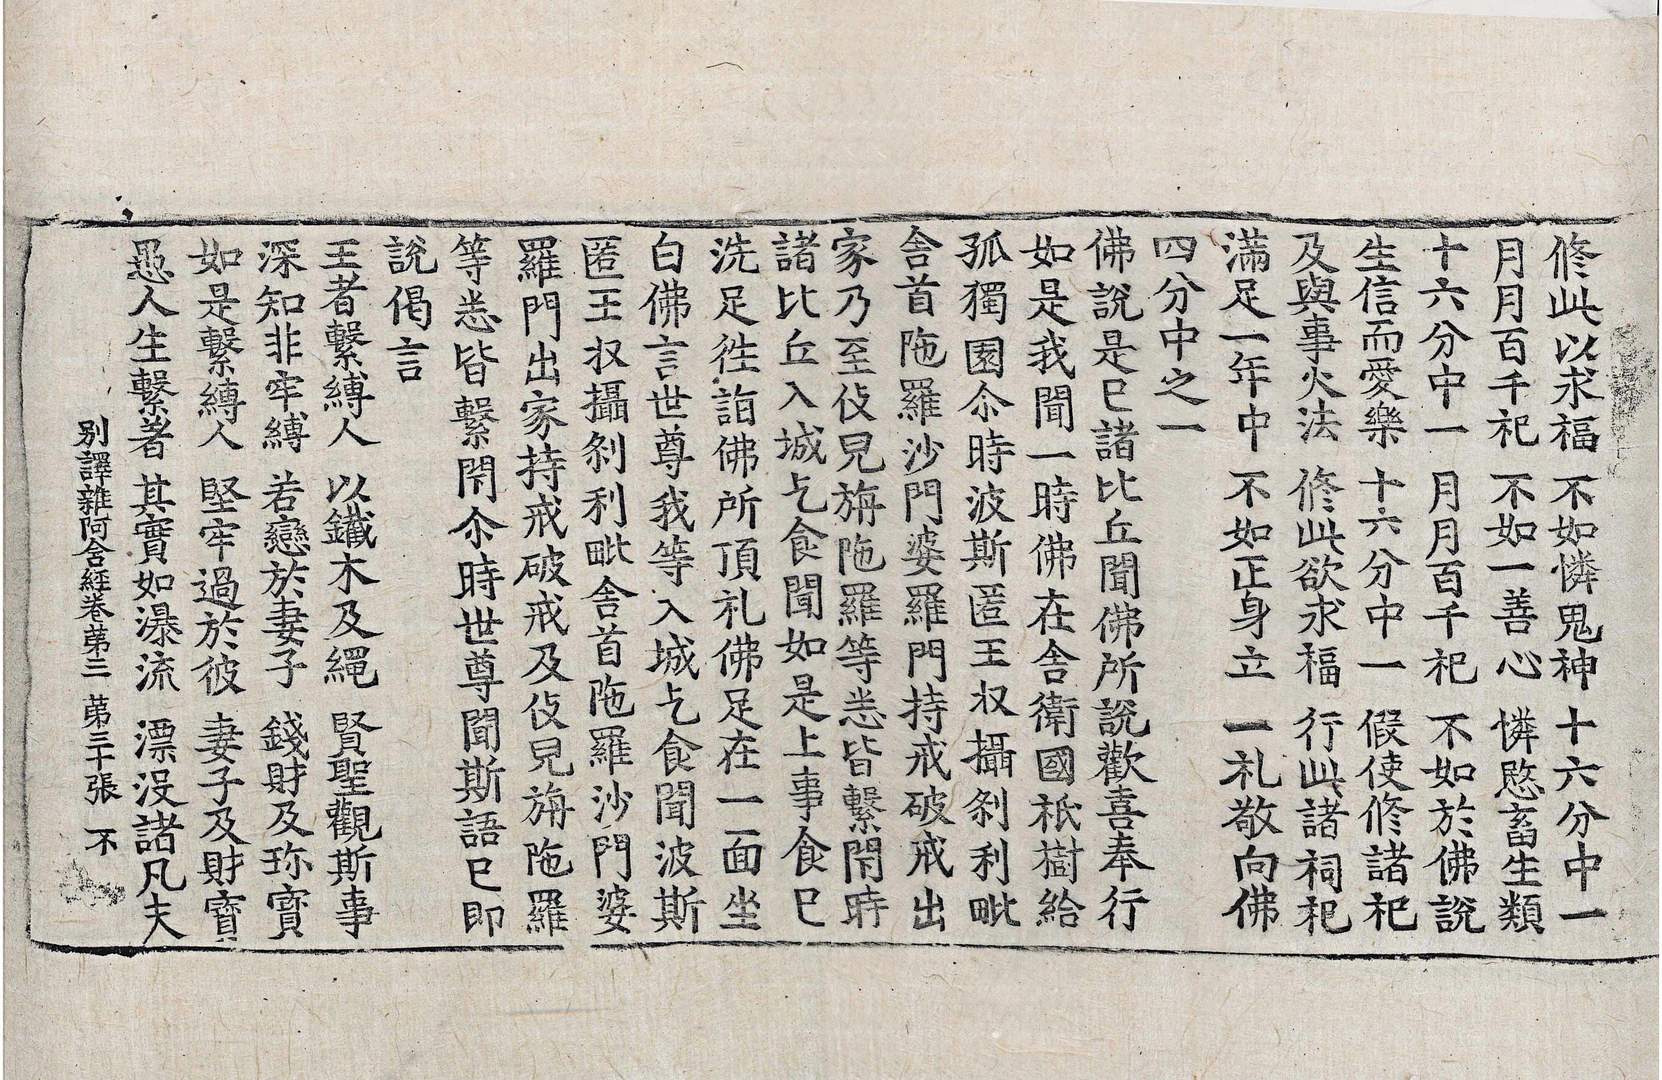 修此以求福　不如憐鬼神　十六分中一
月月百千祀　不如一善心　憐愍畜生類
十六分中一　月月百千祀　不如於佛說
生信而愛樂　十六分中一　假使修諸祀
及與事火法　修此欲求福　行此諸祠祀
滿足一年中　不如正身立　一礼敬向佛
四分中之一
佛說是已諸比丘聞佛所說歡喜奉行
如是我聞一時佛在舍衛國祇樹給
孤獨園尒時波斯匿王収攝剎利毗
舍首陁羅沙門婆羅門持戒破戒出
家乃至伎兒旃陁羅等悉皆繫閇時
諸比丘入城乞食聞如是上事食已
洗足徃詣佛所頂礼佛足在一面坐
白佛言世尊我等入城乞食聞波斯
匿王収攝剎利毗舍首陁羅沙門婆
羅門出家持戒破戒及伎兒旃陁羅
等悉皆繫閇尒時世尊聞斯語已即
說偈言
王者繫縛人　以鐵木及繩　賢聖觀斯事
深知非牢縛　若戀於妻子　錢財及珎寶
如是繫縛人　堅牢過於彼　妻子及財寶
愚人生繫著　其實如瀑流　漂没諸凡夫
別譯雜阿含經卷苐二　苐三十張　不